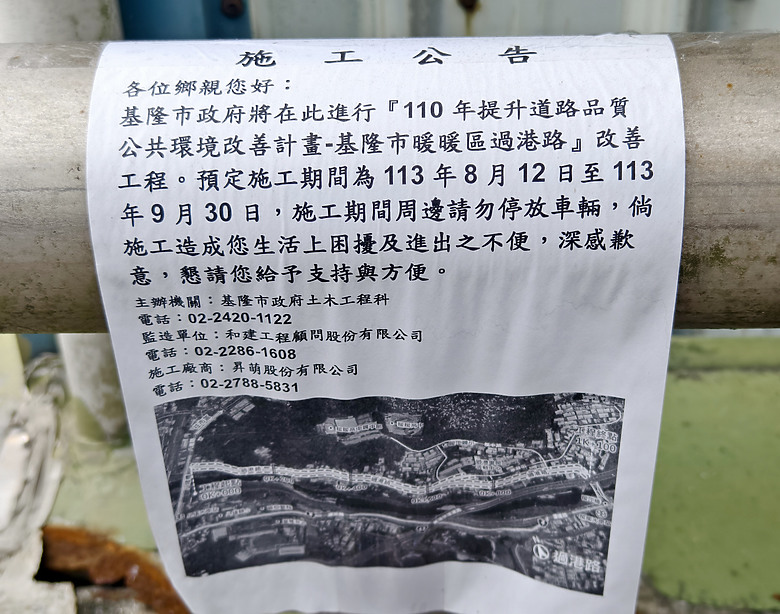 施工公告
各位鄉親您好：
基隆市政府將在此進行『110 年提升道路品質
公共環境改善計畫-基隆市暖暖區過港路』改善
工程。預定施工期間為 113 年 8 月 12 日至 113
年 9 月 30 日，施工期間周邊請勿停放車輛，倘
施工造成您生活上困擾及進出之不便，深感歉
意，懇請您給予支持與方便。
主辦機關：基隆市政府土木工程科
電話：02-2420-1122
監造單位：和建工程顧問股份有限公司
電話：02-2286-1608
施工廠商：昇萌股份有限公司
電話：02-2788-5831
工程終點
1K+100
工程起點
0K+000
過港路